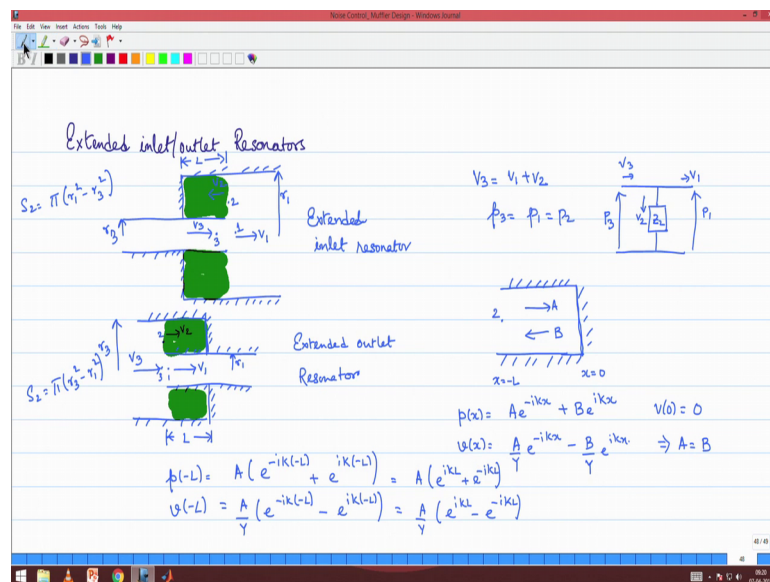 Noise Control, Muffler Design - Windows Journal
File Edit View Insert Actions Tools Help
B I
Extended inlet/outlet Resonators
|← L →|
S₂ = π(r₁² - r₃²)
V₂
.2
r₁
r₃
V₃
3
1
V₁
Extended
inlet resonator
V₃ = V₁ + V₂
p₃ = p₁ = p₂
V₃
V₁
P₃
V₂
Z₂
P₁
S₂ = π(r₃² - r₁²)
r₃
2
V₂
V₃
3
1
V₁
r₁
Extended outlet
Resonator
|← L →|
2.
A
B
x=-L
x=0
p(x) = Ae^{-ikx} + Be^{ikx}
V(0) = 0
v(x) = A/Y e^{-ikx} - B/Y e^{ikx}
⇒ A = B
p(-L) = A(e^{-ik(-L)} + e^{ik(-L)}) = A(e^{ikL} + e^{-ikL})
v(-L) = A/Y (e^{-ik(-L)} - e^{ik(-L)}) = A/Y (e^{ikL} - e^{-ikL})
48 / 49
48
09:20